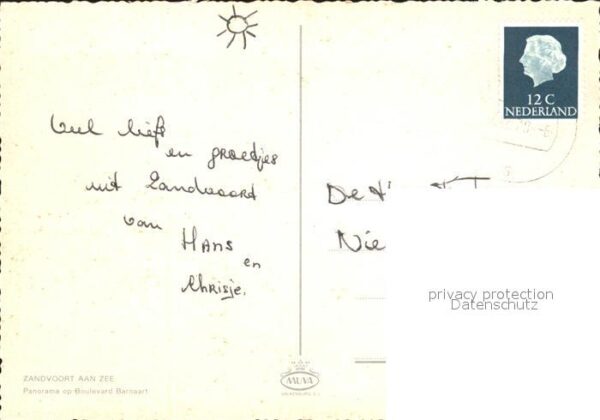 Veel liefs
en groetjes
uit Zandvoort
van
Hans
en
Chrisje.
12 C
NEDERLAND
De
Nie
privacy protection
Datenschutz
MUVA
ZANDVOORT AAN ZEE
Panorama op Boulevard Barnaart